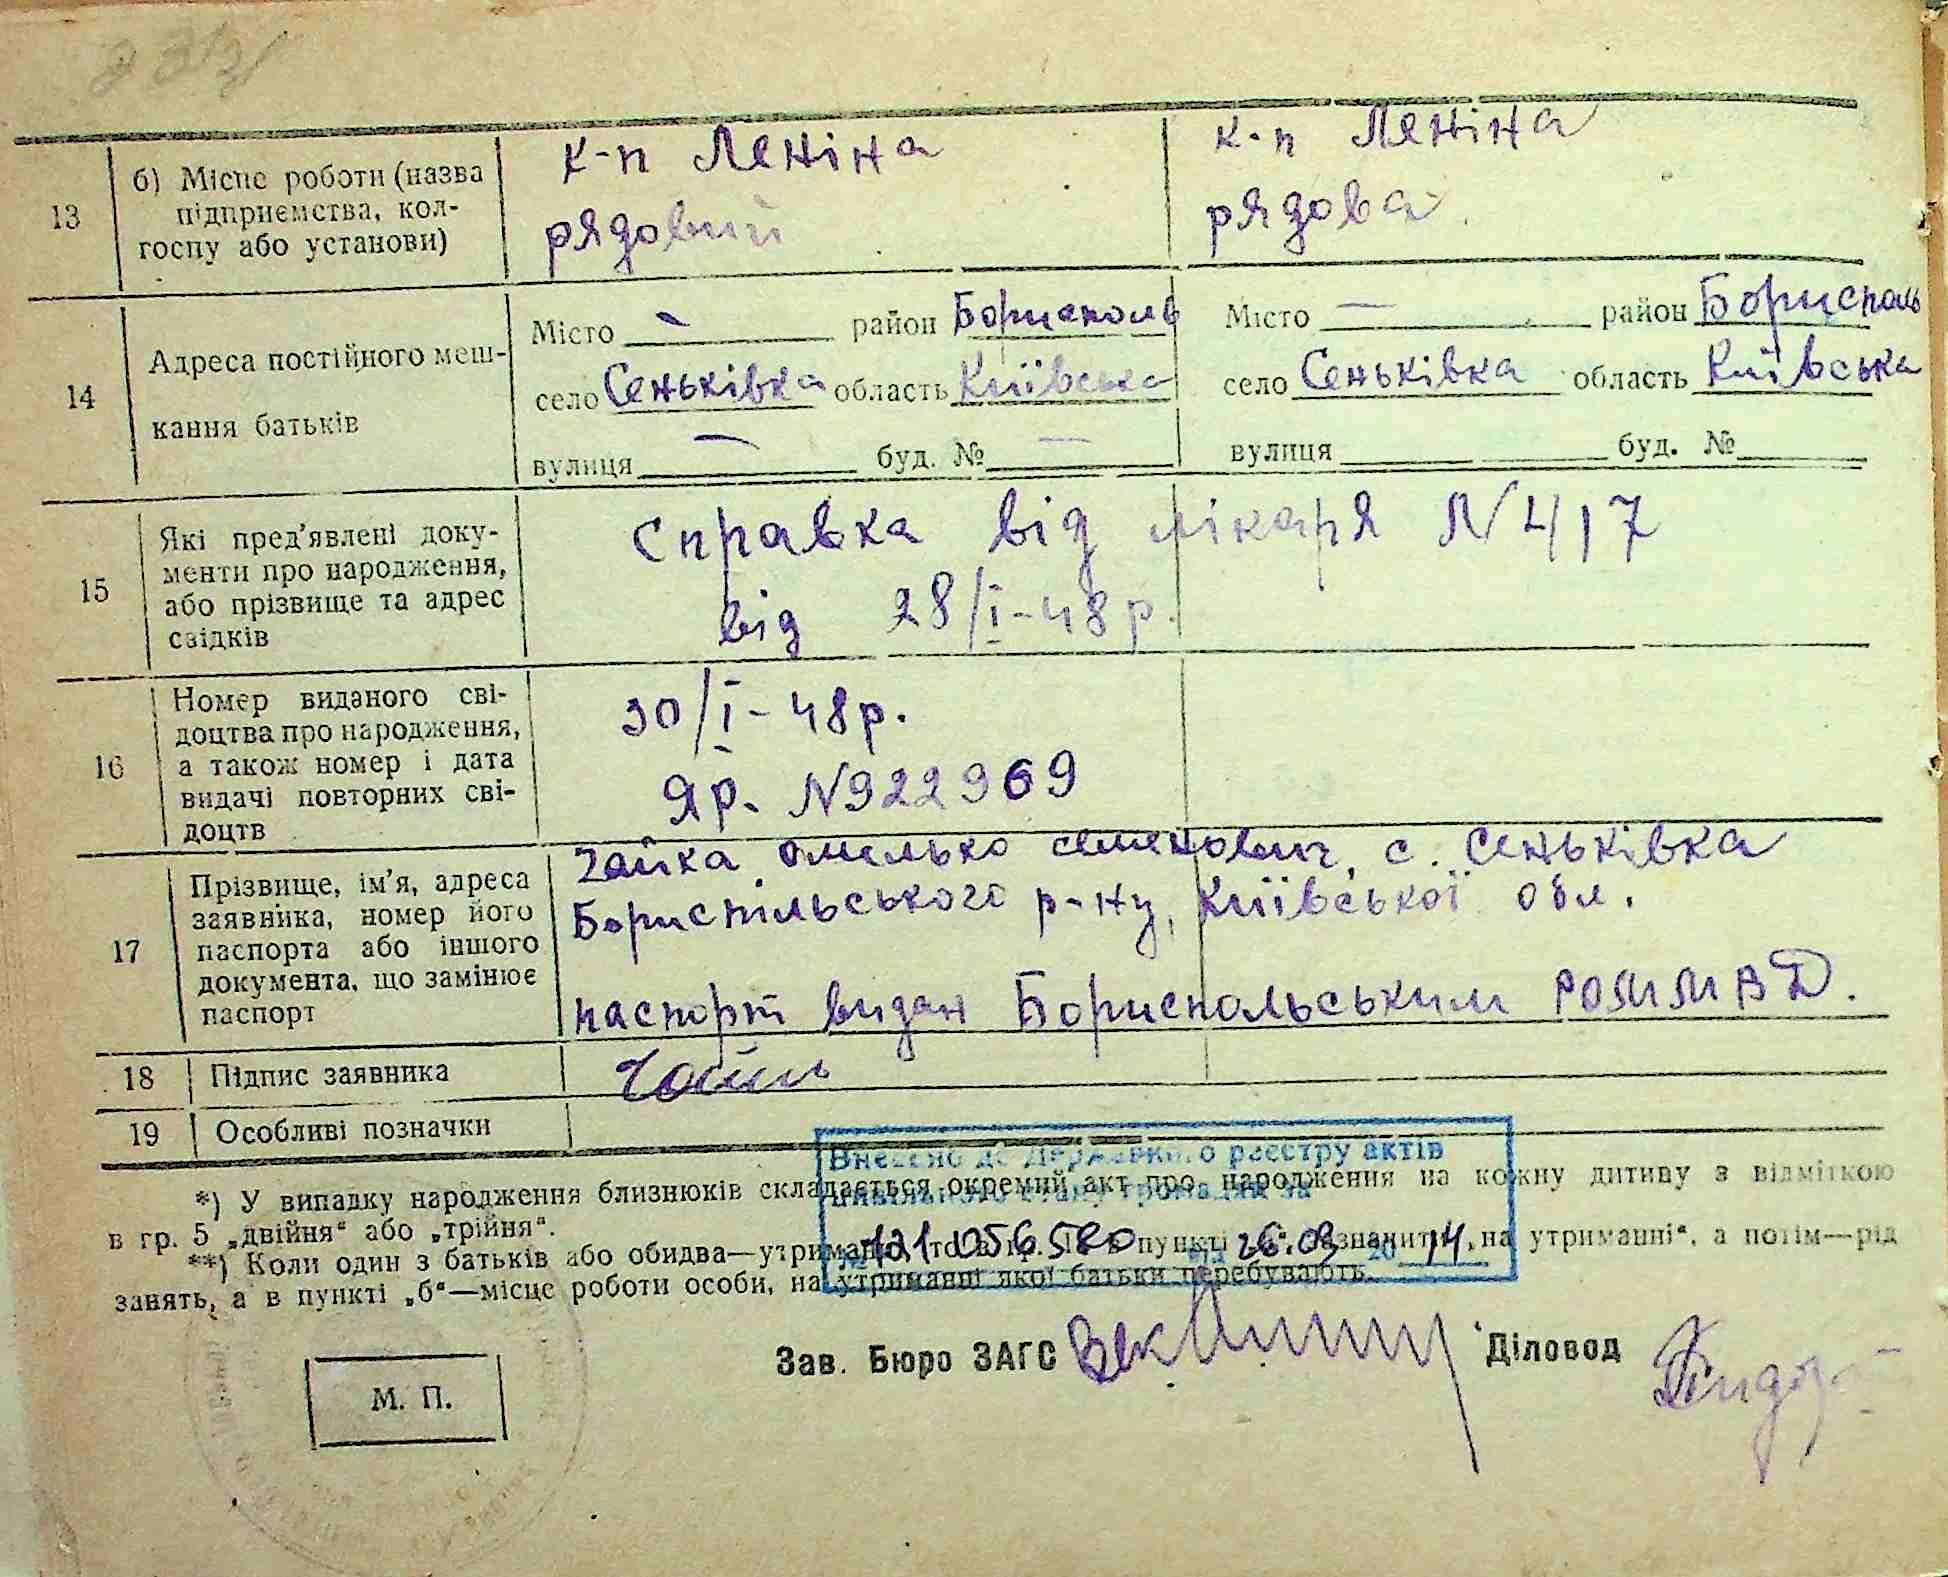 13
б) Місце роботи (назва
підприємства, кол-
госпу або установи)
к-п Леніна
рядовий
к-п Леніна
рядова
14
Адреса постійного меш-
кання батьків
Місто — район Бориспол
село Сеньківка область Київська
вулиця — буд. № —
Місто — район Бориспель
село Сеньківка область Київська
вулиця буд. №
15
Які пред'явлені доку-
менти про народження,
або прізвище та адрес
свідків
Справка від лікаря N 417
від 28/I-48р.
16
Номер виданого сві-
доцтва про народження,
а також номер і дата
видачі повторних сві-
доцтв
30/I-48р.
ЯР. N922969
17
Прізвище, ім'я, адреса
заявника, номер його
паспорта або іншого
документа, що замінює
паспорт
Чайка Омелько Семенович, с. Сеньківка
Бориспільського р-ну, Київської обл.
паспорт видан Бориспольським РОММВД.
18
Підпис заявника
19
Особливі позначки
Внесено до Державного реєстру актів
цивільного стану громадян за
131056580 від 26.03 2014
*) У випадку народження близнюків складається окремий акт про народження на кожну дитину з відміткою
в гр. 5 „двійня“ або „трійня“.
**) Коли один з батьків або обидва—утриманці, то в гр. пункті зазначити „на утриманні“, а потім—рід
занять, а в пункті „б“—місце роботи особи, на утриманні якої батьки перебувають.
Зав. Бюро ЗАГС
Діловод
М. П.